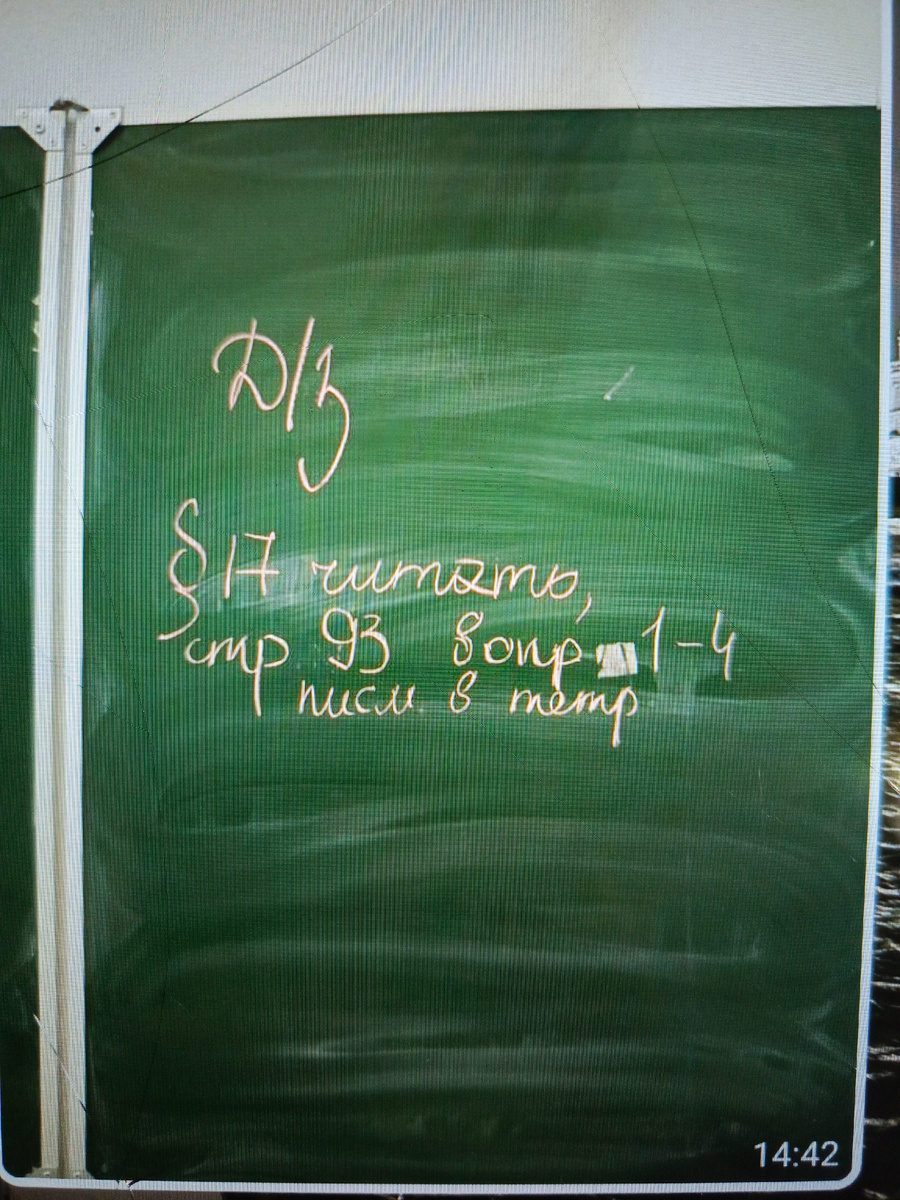 Д/з
§ 17 читать,
стр 93 вопр 1-4
писм. в тетр
14:42